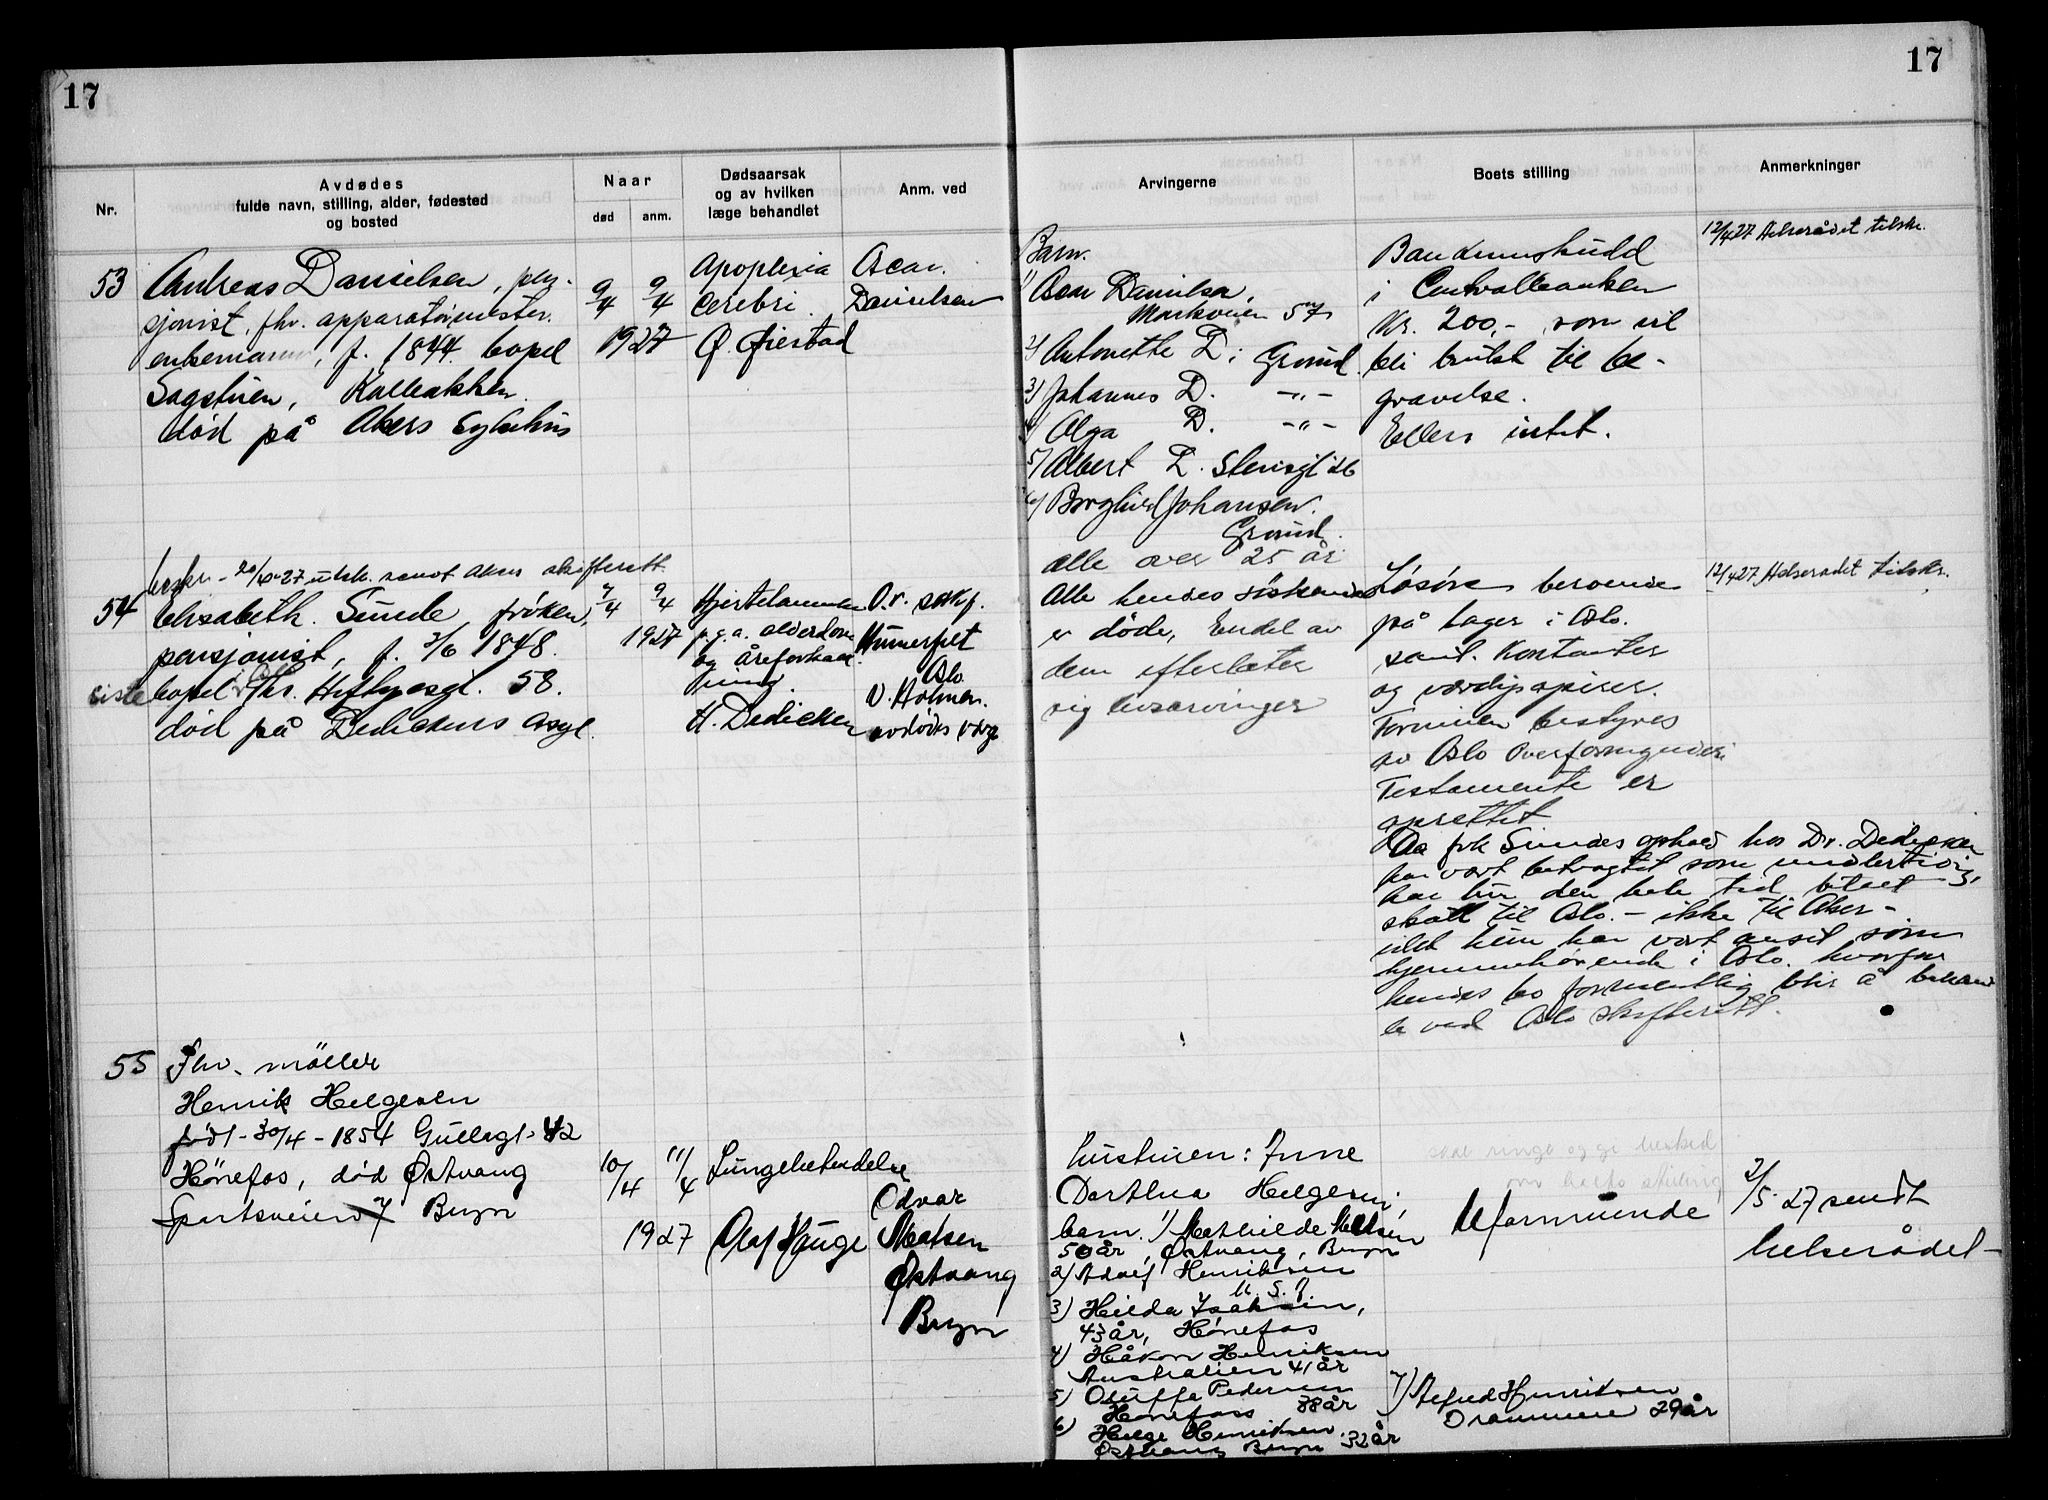 17
17
Nr.
Avdødes
fulde navn, stilling, alder, fødested
og bosted
Naar
død
anm.
Dødsaarsak
og av hvilken
læge behandlet
Anm. ved
Arvingerne
Boets stilling
Anmerkninger
53
Andreas Danielsen, pen-
sjonist, fhv. apparatøimester.
enkemann, f. 1844 bopel
Sagstuen, Kalbakken.
død på Akers Sykehus
9/4
9/4
1927
Apoplexia
cerebri.
Ø. Øiestad
Oscar
Danielsen
Barn.
1) Oscar Danielsen,
Markveien 57
2) Antonette D. Grorud.
3) Johannes D. -"-
4) Olga D. -"-
5) Albert D. Stensgt
6) Borghild Johansen.
Grorud.
alle over 25 år
Bankinnskudd
i Centralbanken
Kr. 200,- som vil
bli brukt til be-
gravelse.
Ellers intet.
12/4 27 Helserådet tilskr.
beskr. 27 utsk. sendt Aker skifterett
54
Elisabeth Sunde frøken,
pensjonist, f. 3/6 1848.
siste bopel i Oslo Thr. Heftyesgt. 58.
død på Dedichens asyl.
7/4
9/4
1927
Hjertelammelse
p.g.a. alderdom
og åreforkalk-
ning.
H. Dedichen
O.r. sakf.
Hunerfelt
Oslo
V. Holmen.
avdødes verge
Alle hendes søskende
er døde, Endel av
dem efterlater
sig livsarvinger
Løsøre beroende
på lager i Oslo.
samt. Kontanter
og verdipapirer.
Formuen bestyres
av Oslo Overformynderi
Testamente er
oprettet
Da frk Sundes ophold hos Dr. Dedichen
har vært betragtet som midlertidig,
har hun den hele tid betalt
skatt til Oslo. - ikke til Aker -
idet hun har vært anset som
hjemmehørende i Oslo. hvorfor
hendes bo formentlig blir å behand
le ved Oslo skifterett.
12/4 27 Helserådet tilskr.
55
Fhv. møller
Henrik Helgesen
født - 30/4 - 1854 Gullagt. 42
Hønefos, død Østvang
Sportsveien 7 Bryn
10/4
11/4
1927
Lungebetendelse
Olaf Hauge
Odvar
Madsen
Østvang
Bryn
hustruen: Inne
Dorthea Helgesen,
barn. 1) Mathilde Madsen
50 år, Østvang, Bryn
2) Adolf Henriksen
U. S. A.
3) Hilda Isaksen,
43 år, Hønefos
4) Håkon Henriksen
Australien 41 år
5) Oluffe Pedersen
Hønefoss 38 år
6) Helge Henriksen,
Østvang Bryn 32 år
7) Alfred Henriksen
Drammen 29 år
skal ringe og gi besked
om boets stilling
Uformuende
2/5 27 sendt
helserådet -